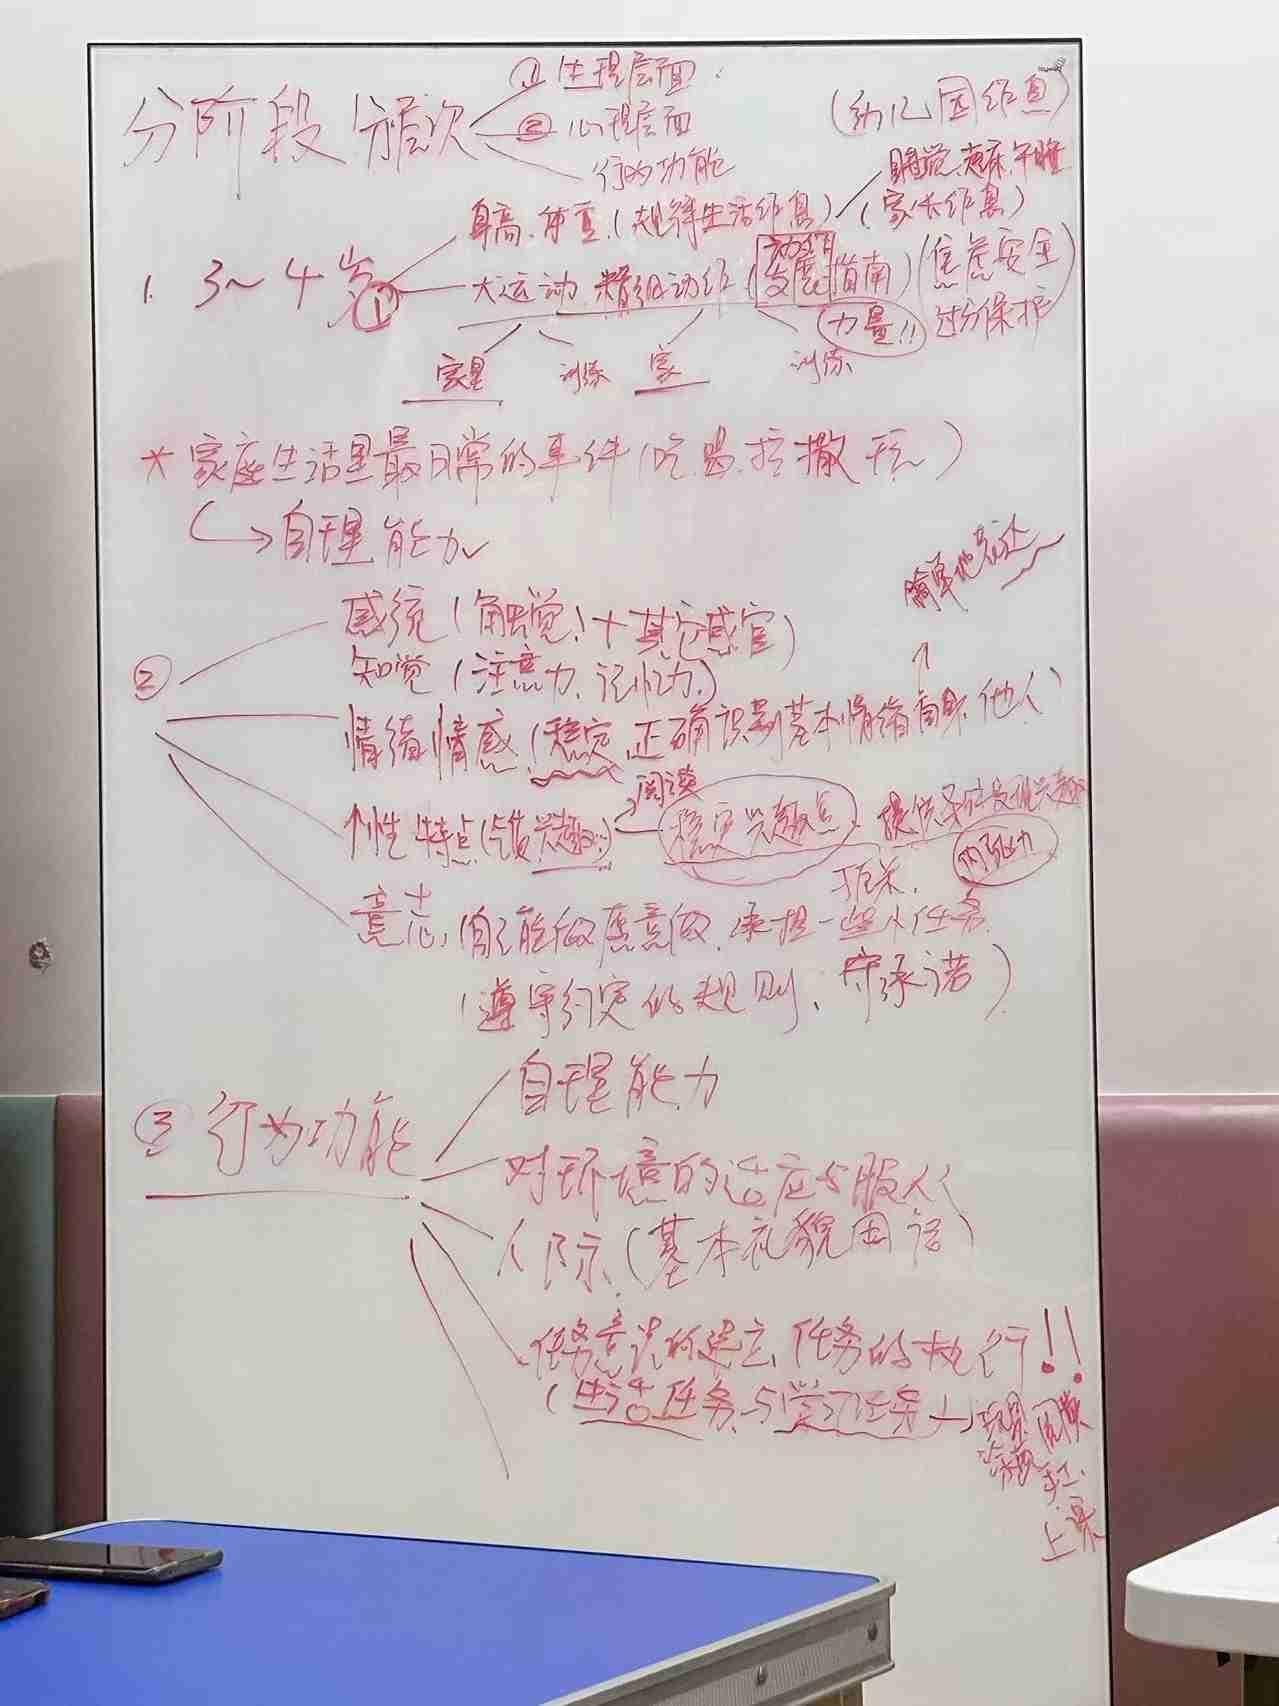 分阶段 分层次
① 生理层面
② 心理层面
行为功能
(幼儿园作息)
睡觉、起床、午睡
身高、体重、(规律生活作息)
(家长作息)
1. 3～4岁 ①
大运动、精细动作(动作发展指南)
(焦虑安全
过分保护)
(力量!!)
家里 训练 家 训练
* 家庭生活里最日常的事件(吃.喝.拉.撒.玩)
自理能力
简单地表达
②
感统(触觉!+其它感官)
知觉(注意力、记忆力)
情绪情感(稳定、正确识别基本情绪自身、他人)
个性特点(兴趣) 阅读 稳定兴趣点
内驱力
意志(自己能做愿意做、承担一些小任务
(遵守约定的规则、守承诺)
③ 行为功能
自理能力
对环境的适应与服从
人际(基本礼貌用语)
任务意识的建立、任务的执行!!
(生活任务与学习任务)
上课